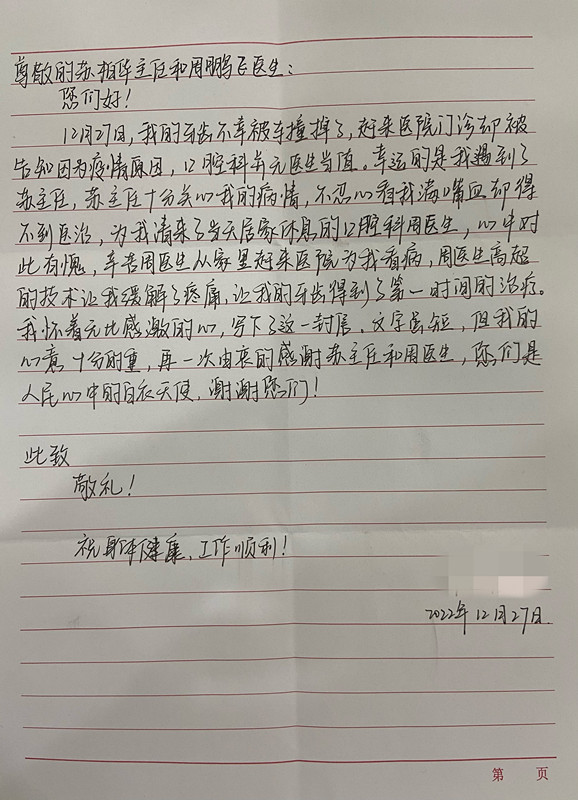 尊敬的苏相华主任和周鹏飞医生:
您们好!
12月27日,我的牙齿不幸被车撞掉了,赶来医院门诊却被
告知因为疫情原因,口腔科并无医生当值。幸运的是我遇到了
苏主任,苏主任十分关心我的病情,不忍心看我满嘴血却得
不到医治,为我请来了当天居家休息的口腔科周医生,心中对
此有愧,辛苦周医生从家里赶来医院为我看病,周医生高超
的技术让我缓解了疼痛,让我的牙齿得到了第一时间的治疗。
我怀着无比感激的心,写下了这一封信。文字虽短,但我的
心意十分的重,再一次由衷的感谢苏主任和周医生,您们是
人民心中的白衣天使,谢谢您们!
此致
敬礼!
祝身体健康,工作顺利!
2022年12月27日.
第 页